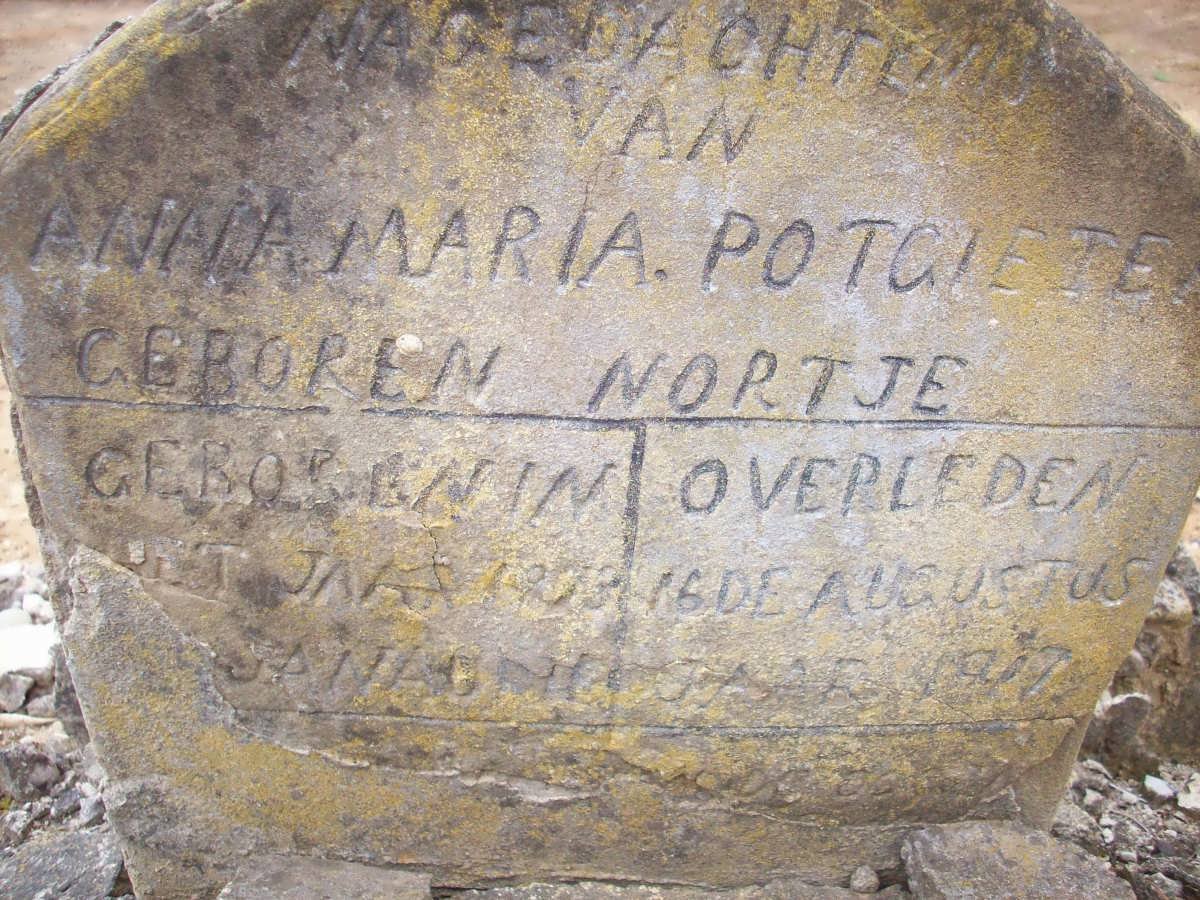 NAGEDACHTENIS
VAN
ANNA. MARIA. POTGIETER
GEBOREN NORTJE
GEBOREN IN
HET JAAR
JANAUARI
OVERLEDEN
16DE AUGUSTUS
JAAR 1917